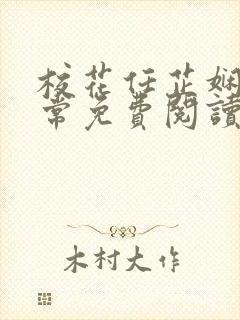 校花任芷娴
常免费閱讀
木村大作